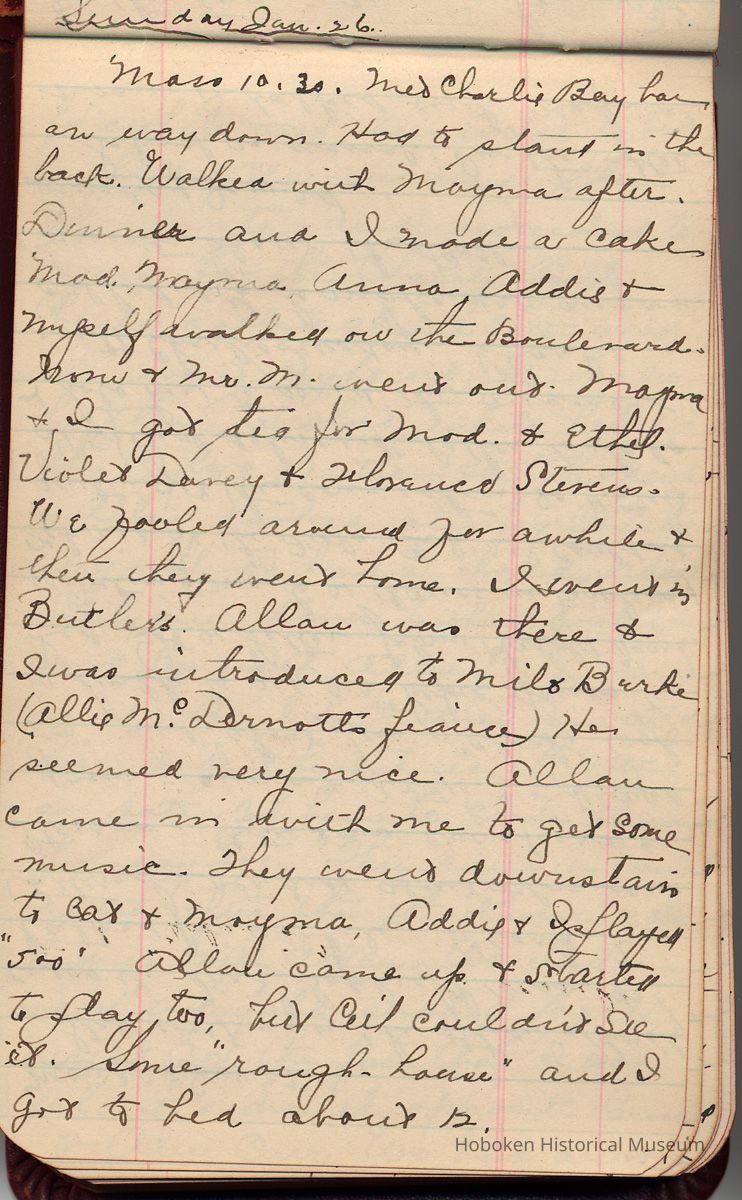 Sunday Jan. 26.
Mass 10.30. Met Charlie Bay
on way down. Had to stand in the
back. Walked with Mayma after.
Dinner and I made a cake
Mad. Mayma, Anna, Addie &
myself walked on the Boulevard.
& Mr. M. went out. Mayma
& I got tea for Mad. & Ethel.
Violet Davey & Florence Stevens.
We fooled around for awhile &
then they went home. I went in
Butler's. Allan was there &
I was introduced to Milt Burke
(Allie McDermotts fiance) He
seemed very nice. Allan
came in with me to get some
music. They went downstairs
to eat & Mayma, Addie & I played
"500" Allan came up & started
to play too, but Ceil couldn't see
it. Some "rough-house" and I
got to bed about 12.
Hoboken Historical Museum